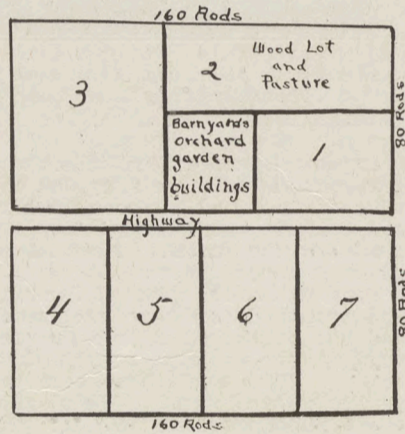 160 Rods
3
2
Wood Lot
and
Pasture
80 Rods
Barnyards
orchard
garden
buildings
1
Highway
4
5
6
7
80 Rods
160 Rods